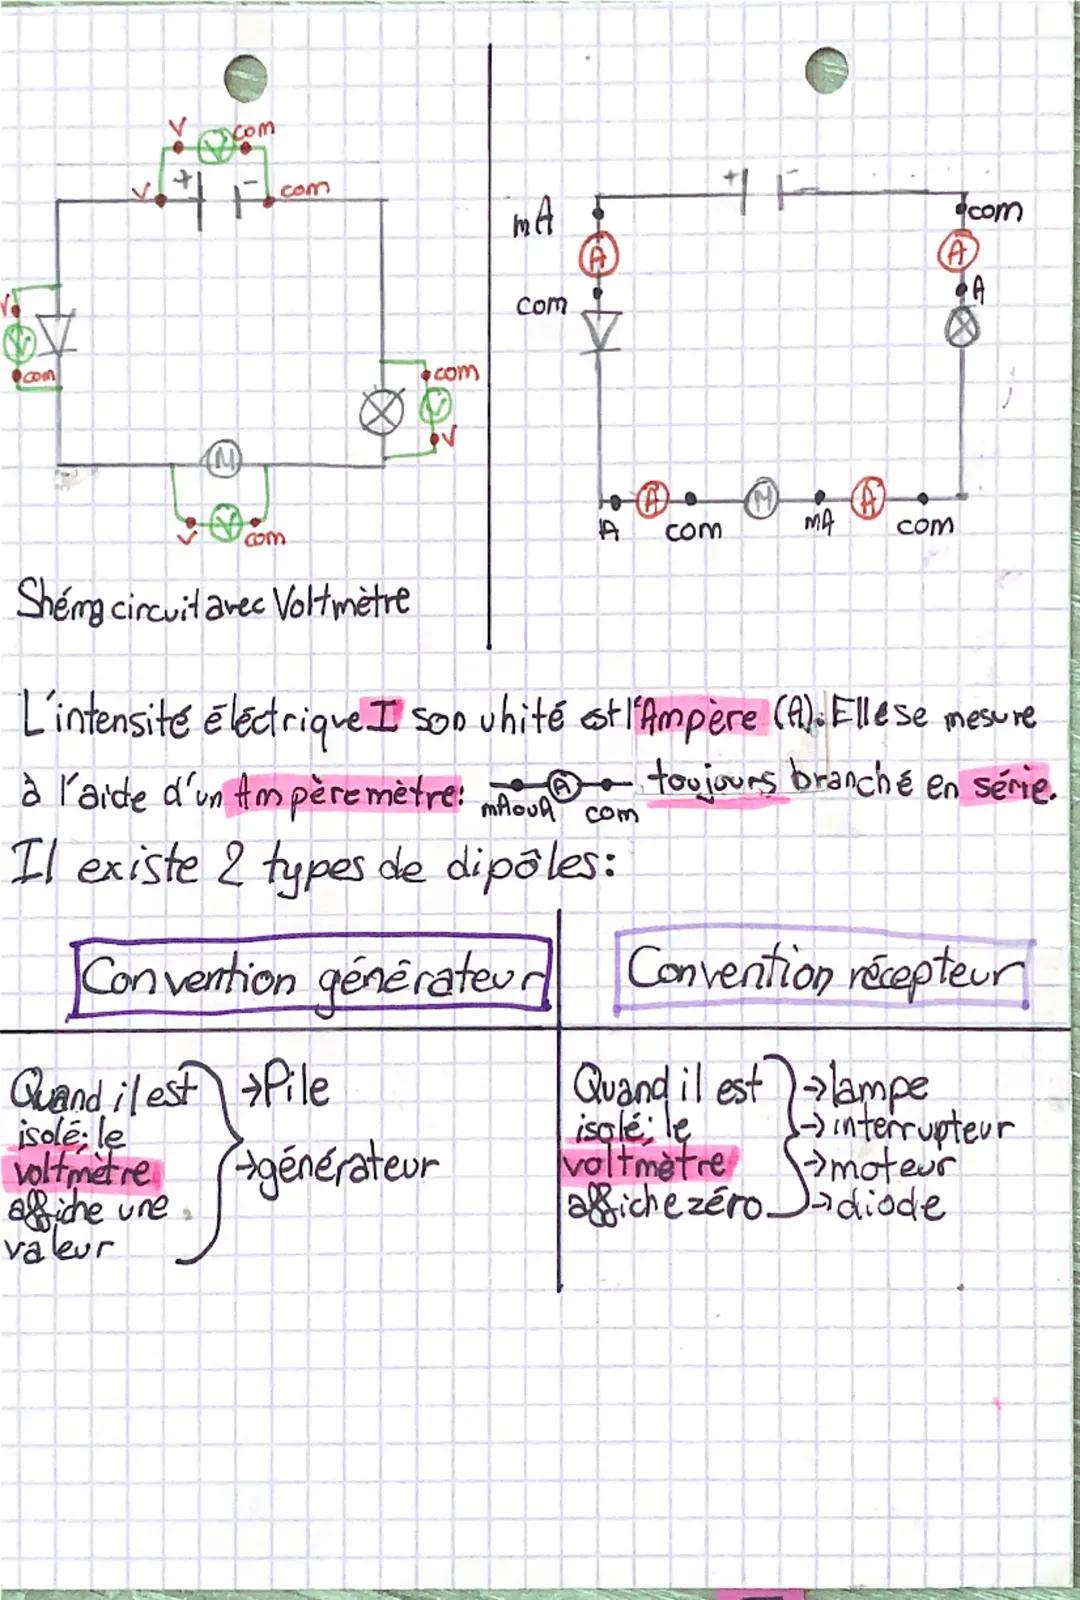 V com
V + - com
V
V
com
com
V
V
M
V
V com
Shéma circuit avec Voltmètre
+ -
mA
A
com
com
A
A
A
M
A
A com mA com
L'intensité éléctrique I son unité est l'Ampère (A). Elle se mesure
à l'aide d'un Ampèremètre: A toujours branché en série.
mAouA com
Il existe 2 types de dipôles:
Convention générateur
Quand il est
isolé; le
voltmètre
affiche une
valeur
→Pile
→générateur
Convention récepteur
Quand il est
isolé; le
voltmètre
affiche zéro.
→lampe
→interrupteur
→moteur
→diode